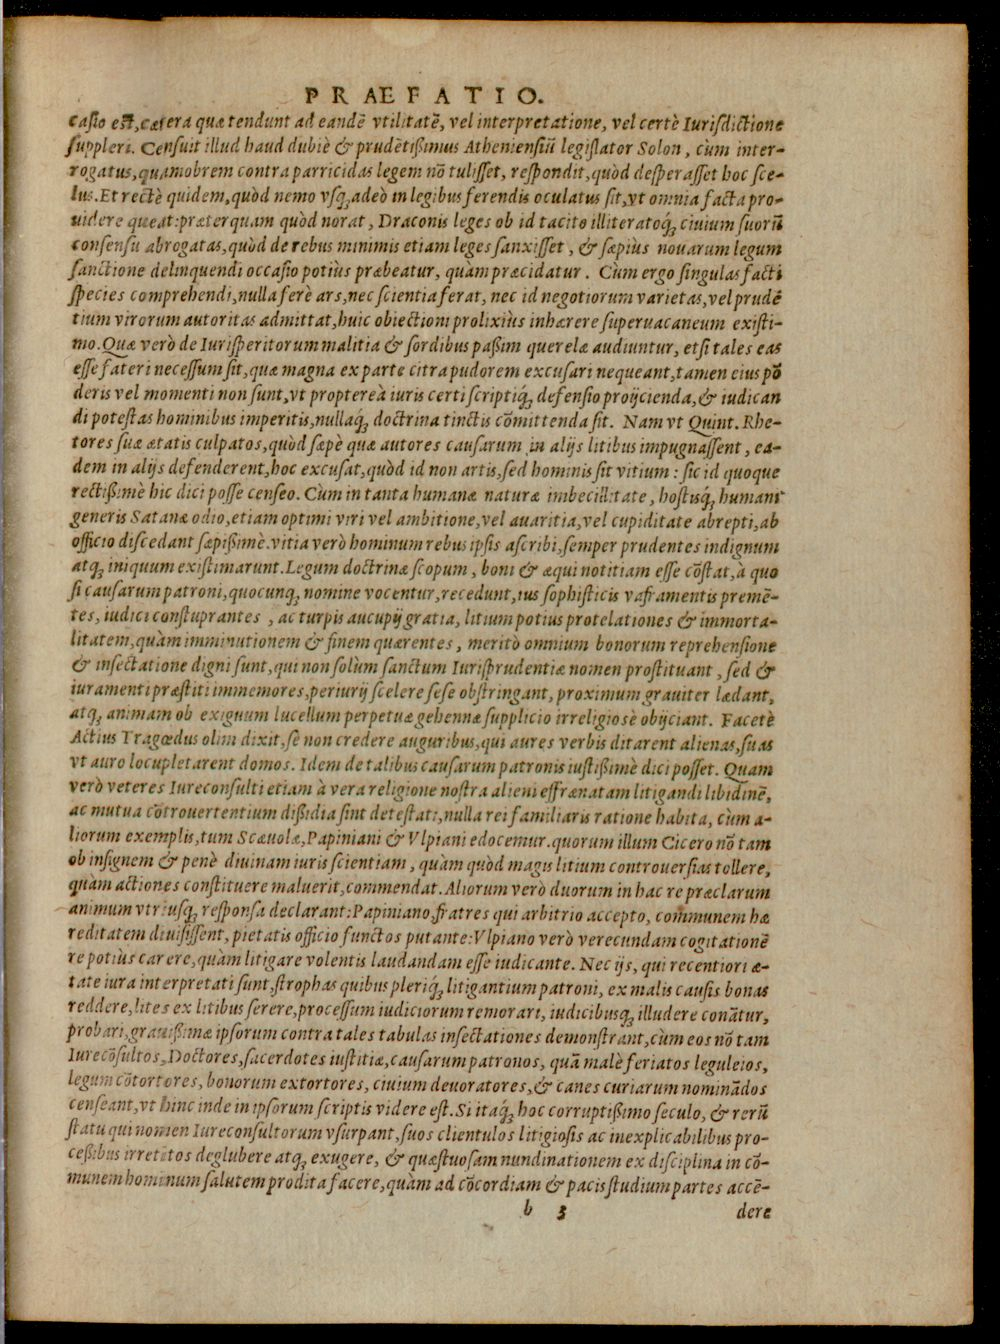 PRAEFATIO.
casio est, cætera quæ tendunt ad eandē vtilitatē, vel interpretatione, vel certè Iurisdictione
suppleri. Censuit illud haud dubiè & prudētißimus Atheniensiū legislator Solon, cùm inter-
rogatus, quamobrem contra parricidas legem nō tulisset, respondit, quòd desperasset hoc sce-
lus. Et rectè quidem, quòd nemo vsq; adeò in legibus ferendis oculatus sit, vt omnia facta pro-
uidere queat: præterquam quòd norat, Draconis leges ob id tacito illiteratoq; ciuium suorū
consensu abrogatas, quòd de rebus minimis etiam leges sanxisset, & sæpius nouarum legum
sanctione delinquendi occasio potiùs præbeatur, quàm præcidatur. Cùm ergo singulas facti
species comprehendi, nulla ferè ars, nec scientia ferat, nec id negotiorum varietas, vel prudē
tium virorum autoritas admittat, huic obiectioni prolixiùs inhærere superuacaneum existi-
mo. Quæ verò de Iurisperitorum malitia & sordibus paßim querelæ audiuntur, etsi tales eas
esse fateri necessum sit, quæ magna ex parte citra pudorem excusari nequeant, tamen eius pō
deris vel momenti non sunt, vt proptereà iuris certi scriptiq; defensio proijcienda, & iudican
di potestas hominibus imperitis, nullaq; doctrina tinctis cōmittenda sit. Nam vt Quint. Rhe-
tores suæ ætatis culpatos, quòd sæpè quæ autores causarum in alijs litibus impugnassent, ea-
dem in alijs defenderent, hoc excusat, quòd id non artis, sed hominis sit vitium: sic id quoque
rectißimè hic dici posse censeo. Cùm in tanta humanæ naturæ imbecillitate, hostisq; humani
generis Satanæ odio, etiam optimi viri vel ambitione, vel auaritia, vel cupiditate abrepti, ab
officio discedant sæpißimè. vitia verò hominum rebus ipsis ascribi, semper prudentes indignum
atq; iniquum existimarunt. Legum doctrinæ scopum, boni & æqui notitiam esse cōstat, à quo
si causarum patroni, quocunq; nomine vocentur, recedunt, ius sophisticis vaframentis premē-
tes, iudici constuprantes, ac turpis aucupij gratia, litium potius protelationes & immorta-
litatem, quàm imminutionem & finem quærentes, meritò omnium bonorum reprehensione
& insectatione digni sunt, qui non solùm sanctum Iurisprudentiæ nomen prostituant, sed &
iuramenti præstiti immemores, periurij scelere sese obstringant, proximum grauiter lædant,
atq; animam ob exiguum lucellum perpetuæ gehennæ supplicio irreligiosè obijciant. Facetè
Actius Tragœdus olim dixit, se non credere auguribus, qui aures verbis ditarent alienas, suas
vt auro locupletarent domos. Idem de talibus causarum patronis iustißimè dici posset. Quam
verò veteres Iureconsulti etiam à vera religione nostra alieni effrænatam litigandi libidinē,
ac mutua cōtrouertentium dißidia sint detestati, nulla rei familiaris ratione habita, cùm a-
liorum exemplis, tum Scæuolæ, Papiniani & Vlpiani edocemur. quorum illum Cicero nō tam
ob insignem & penè diuinam iuris scientiam, quàm quòd magis litium controuersias tollere,
quàm actiones constituere maluerit, commendat. Aliorum verò duorum in hac re præclarum
animum vtriusq; responsa declarant: Papiniano, fratres qui arbitrio accepto, communem hæ
reditatem diuisissent, pietatis officio functos putante: Vlpiano verò verecundam cogitationē
re potiùs carere, quàm litigare volentis laudandam esse iudicante. Nec ijs, qui recentiori æ-
tate iura interpretati sunt, strophas quibus pleriq; litigantium patroni, ex malis causis bonas
reddere, lites ex litibus serere, processum iudiciorum remorari, iudicibusq; illudere conātur,
probari, grauißimæ ipsorum contra tales tabulas insectationes demonstrant, cùm eos nō tam
Iurecōsultos, Doctores, sacerdotes iustitiæ, causarum patronos, quā malè feriatos leguleios,
legum cōtortores, bonorum extortores, ciuium deuoratores, & canes curiarum nominādos
censeant, vt hinc inde in ipsorum scriptis videre est. Si itaq; hoc corruptißimo seculo, & rerū
statu qui nomen Iureconsultorum vsurpant, suos clientulos litigiosis ac inexplicabilibus pro-
ceßibus irretitos deglubere atq; exugere, & quæstuosam nundinationem ex disciplina in cō-
munem hominum salutem prodita facere, quàm ad cōcordiam & pacis studium partes accē-
b 3 dere